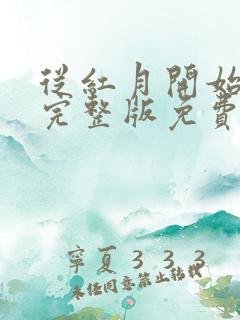 從紅月開始
完整版免費
寧夏333
未經同意禁止轉載